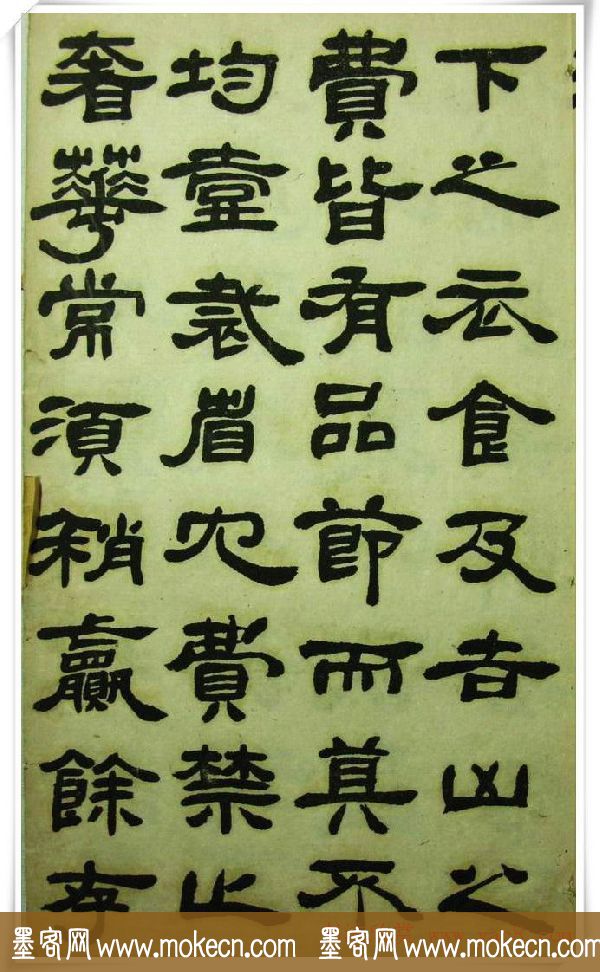 下之衣食及吉凶之
費皆有品節而莫不
均壹裁省冗費禁止
奢華常須稍贏餘存
墨客网 www.mokecn.com 墨客网 www.mokecn.com